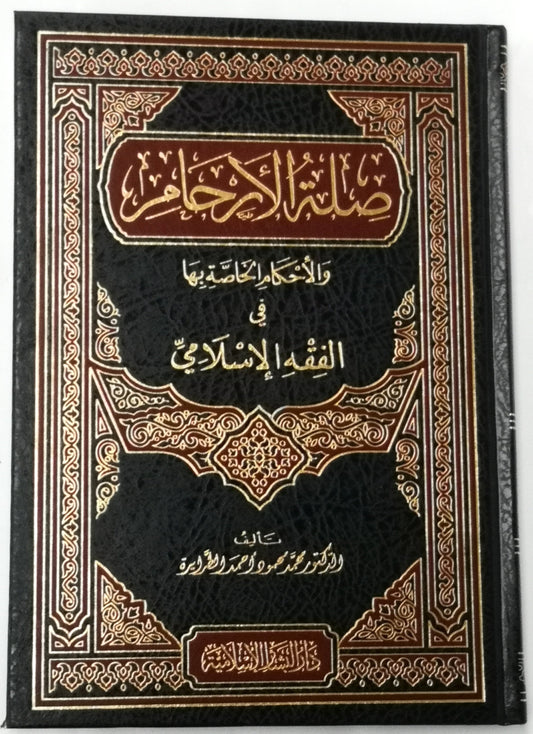 صِلَةُ الأَرْحَامِ
وَالأَحْكَامِ الخَاصَّةِ بِهَا
فِي
الفِقْهِ الإِسْلَامِيِّ
تأليف
الدكتور محمد محمود أحمد الطرايرة
دار البشائر الإسلامية